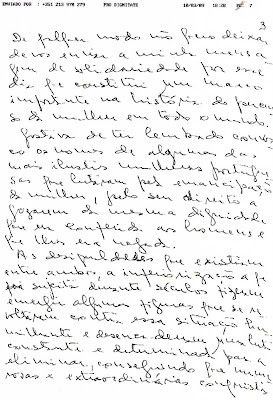 ENVIADO POR : +351 213 978 218 PRO DIGNITATE 10/03/09 18:28 Pg: 7
3
De qualquer modo não quis deixar
de vos enviar a minha mensa
gem de solidariedade por esse
dia que constitui um marco
importante na história do proces
so da mulher em todo o mundo.
Gostava de ter lembrado convos
co os nomes de algumas das
mais ilustres mulheres portugue
sas que lutaram pela emancipação
da mulher, pelo seu direito a
gozarem da mesma dignidade
que era conferida aos homens e
que lhes era negada.
As desigualdades que existiam
entre ambos, a inferiorização a que
foi sujeita durante séculos fizeram
emergir algumas figuras que se re
voltaram contra essa situação hu
milhante e desencadearam uma luta
constante e determinada para a
eliminar, conseguindo que nume
rosas e extraordinárias conquistas